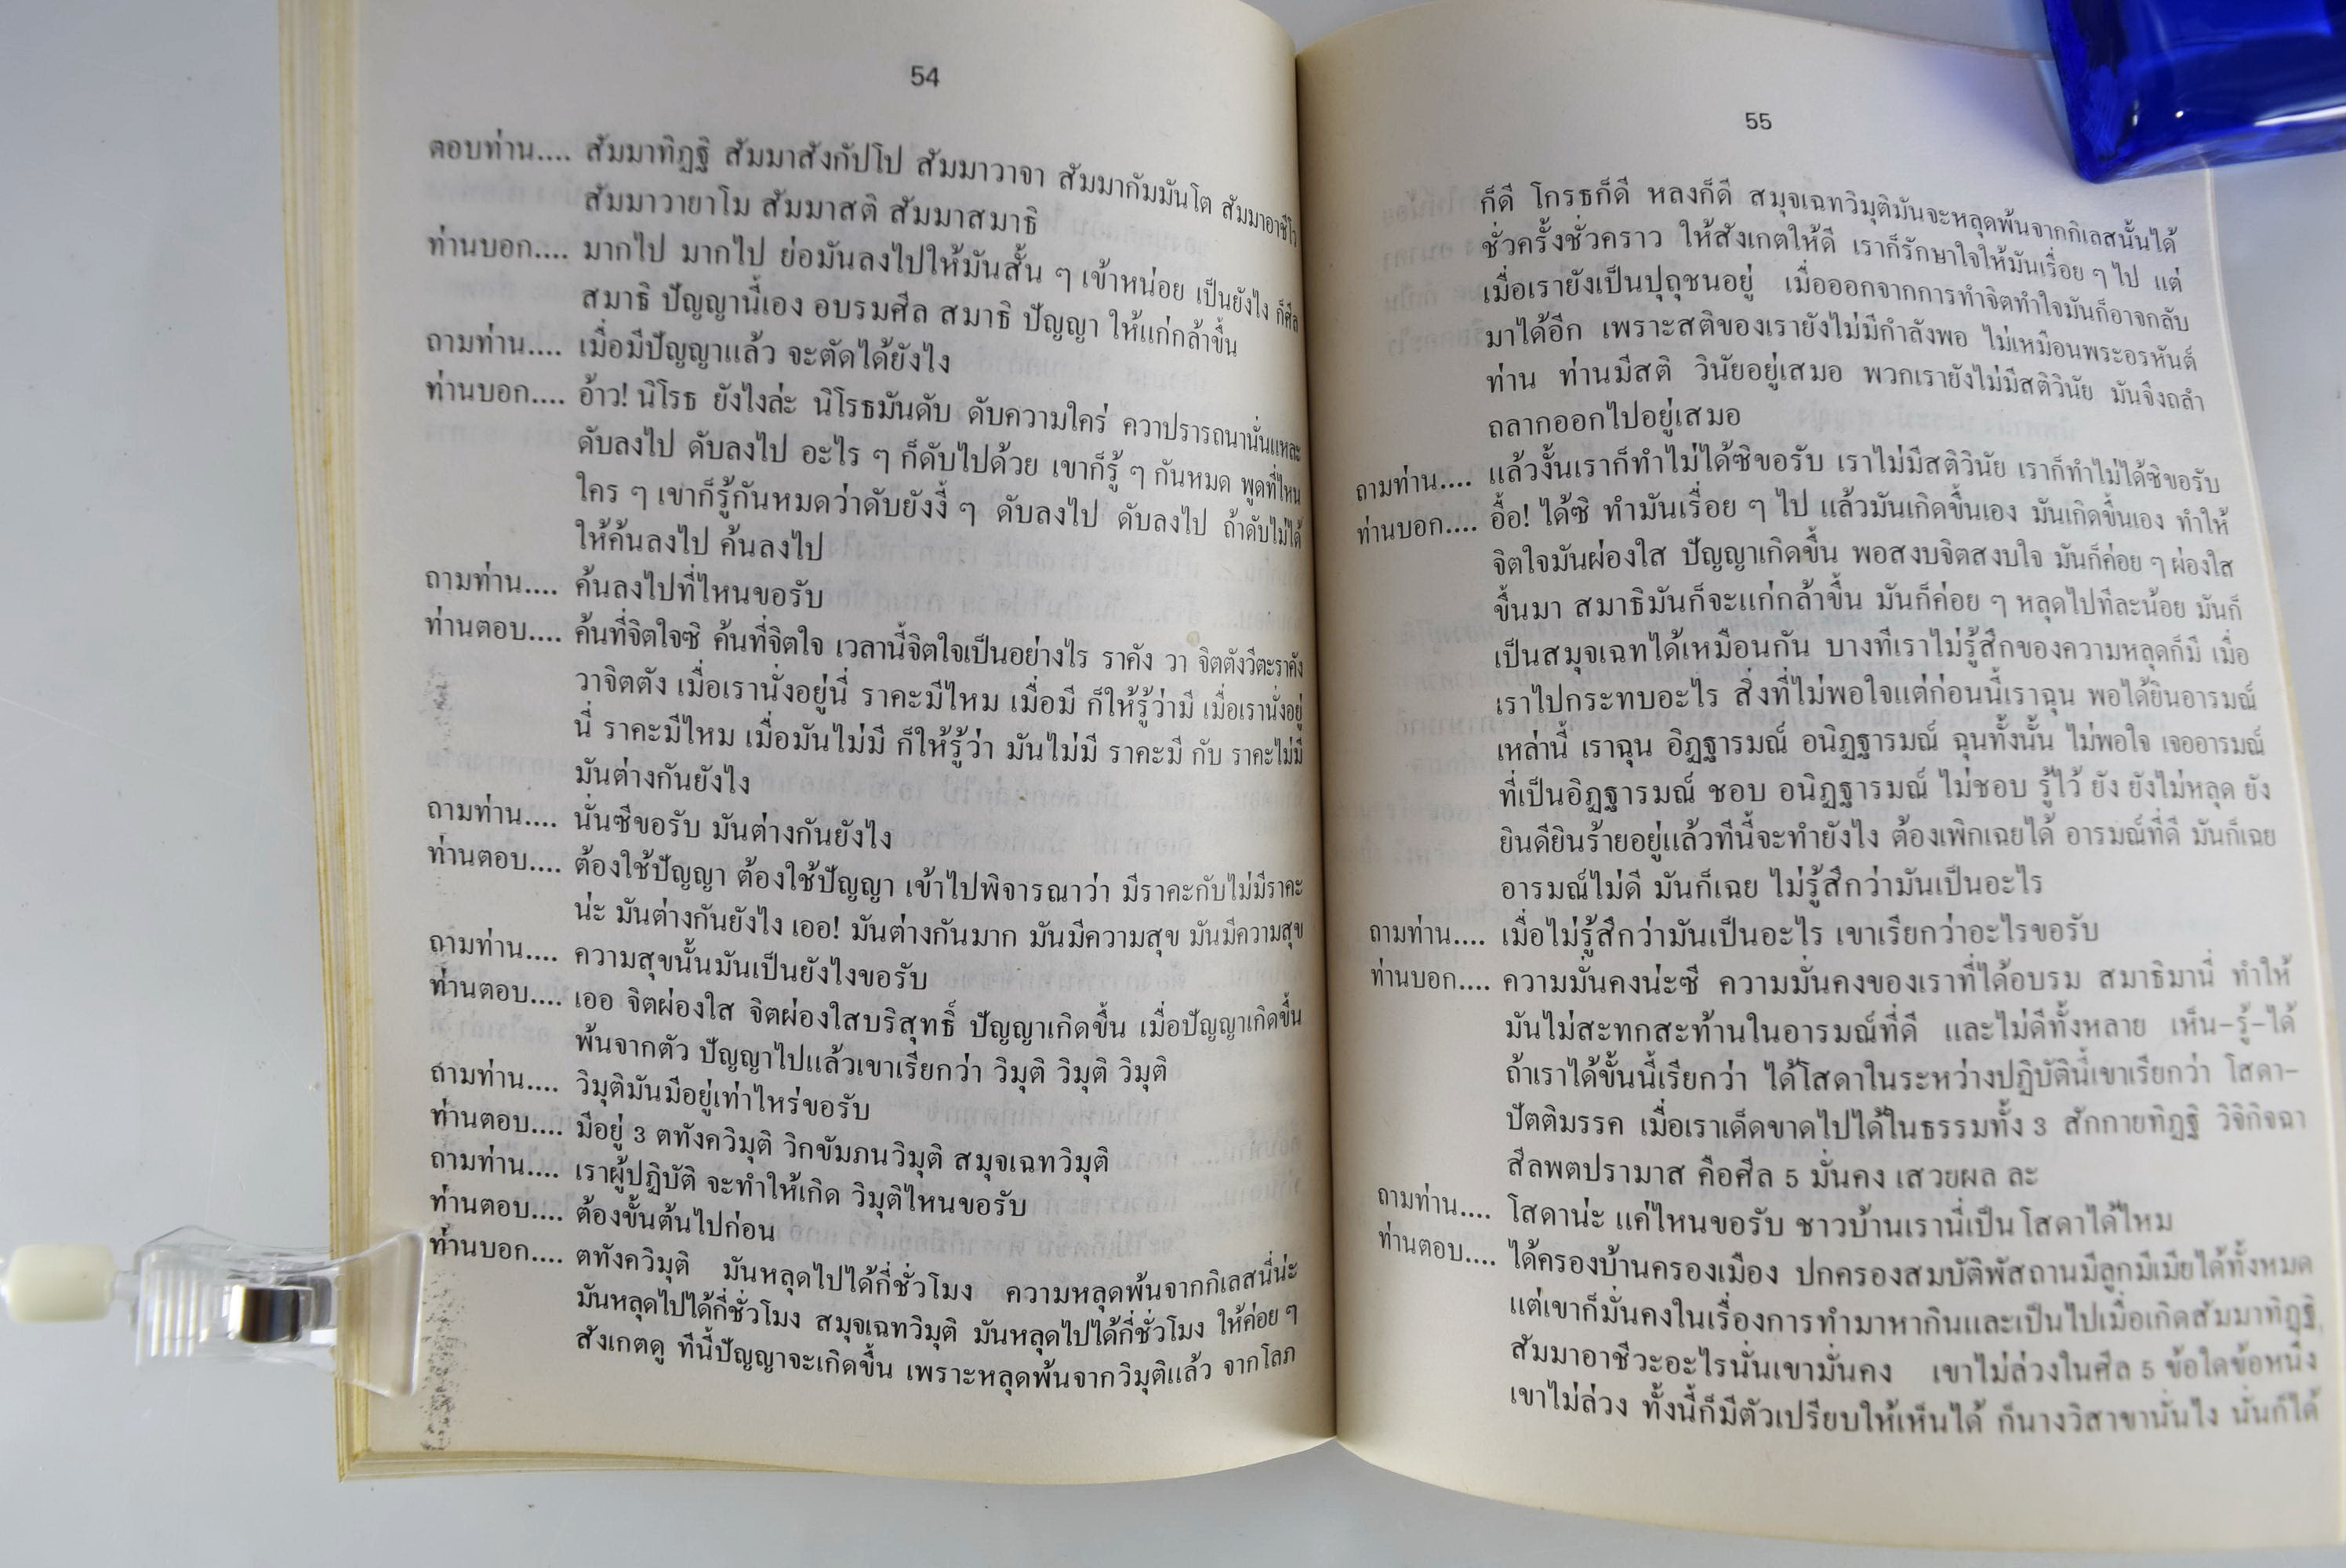 54
ตอบท่าน.... สัมมาทิฏฐิ สัมมาสังกัปโป สัมมาวาจา สัมมากัมมันโต สัมมาอาชีโว
สัมมาวายาโม สัมมาสติ สัมมาสมาธิ
ท่านบอก.... มากไป มากไป ย่อมันลงไปให้มันสั้น ๆ เข้าหน่อย เป็นยังไง ก็ศีล
สมาธิ ปัญญานี้เอง อบรมศีล สมาธิ ปัญญา ให้แก่กล้าขึ้น
ถามท่าน.... เมื่อมีปัญญาแล้ว จะตัดได้ยังไง
ท่านบอก.... อ้าว! นิโรธ ยังไงล่ะ นิโรธมันดับ ดับความใคร่ ควาปรารถนานั่นแหละ
ดับลงไป ดับลงไป อะไร ๆ ก็ดับไปด้วย เขาก็รู้ ๆ กันหมด พูดที่ไหน
ใคร ๆ เขาก็รู้กันหมดว่าดับยังงี้ ๆ ดับลงไป ดับลงไป ถ้าดับไม่ได้
ให้ค้นลงไป ค้นลงไป
ถามท่าน.... ค้นลงไปที่ไหนขอรับ
ท่านตอบ.... ค้นที่จิตใจซิ ค้นที่จิตใจ เวลานี้จิตใจเป็นอย่างไร ราคัง วา จิตตังวีตะราคัง
วาจิตตัง เมื่อเรานั่งอยู่นี่ ราคะมีไหม เมื่อมี ก็ให้รู้ว่ามี เมื่อเรานั่งอยู่
นี่ ราคะมีไหม เมื่อมันไม่มี ก็ให้รู้ว่า มันไม่มี ราคะมี กับ ราคะไม่มี
มันต่างกันยังไง
ถามท่าน.... นั่นซีขอรับ มันต่างกันยังไง
ท่านตอบ.... ต้องใช้ปัญญา ต้องใช้ปัญญา เข้าไปพิจารณาว่า มีราคะกับไม่มีราคะ
น่ะ มันต่างกันยังไง เออ! มันต่างกันมาก มันมีความสุข มันมีความสุข
ถามท่าน.... ความสุขนั้นมันเป็นยังไงขอรับ
ท่านตอบ.... เออ จิตผ่องใส จิตผ่องใสบริสุทธิ์ ปัญญาเกิดขึ้น เมื่อปัญญาเกิดขึ้น
พ้นจากตัว ปัญญาไปแล้วเขาเรียกว่า วิมุติ วิมุติ วิมุติ
ถามท่าน.... วิมุติมันมีอยู่เท่าไหร่ขอรับ
ท่านตอบ.... มีอยู่ 3 ตทังควิมุติ วิกขัมภนวิมุติ สมุจเฉทวิมุติ
ถามท่าน.... เราผู้ปฏิบัติ จะทำให้เกิด วิมุติไหนขอรับ
ท่านตอบ.... ต้องขั้นต้นไปก่อน
ท่านบอก.... ตทังควิมุติ มันหลุดไปได้กี่ชั่วโมง ความหลุดพ้นจากกิเลสนี่น่ะ
มันหลุดไปได้กี่ชั่วโมง สมุจเฉทวิมุติ มันหลุดไปได้กี่ชั่วโมง ให้ค่อย ๆ
สังเกตดู ทีนี้ปัญญาจะเกิดขึ้น เพราะหลุดพ้นจากวิมุติแล้ว จากโลภ
55
ก็ดี โกรธก็ดี หลงก็ดี สมุจเฉทวิมุติมันจะหลุดพ้นจากกิเลสนั้นได้
ชั่วครั้งชั่วคราว ให้สังเกตให้ดี เราก็รักษาใจให้มันเรื่อย ๆ ไป แต่
เมื่อเรายังเป็นปุถุชนอยู่ เมื่อออกจากการทำจิตทำใจมันก็อาจกลับ
มาได้อีก เพราะสติของเรายังไม่มีกำลังพอ ไม่เหมือนพระอรหันต์
ท่าน ท่านมีสติ วินัยอยู่เสมอ พวกเรายังไม่มีสติวินัย มันจึงถลำ
ถลากออกไปอยู่เสมอ
ถามท่าน.... แล้วงั้นเราก็ทำไม่ได้ซิขอรับ เราไม่มีสติวินัย เราก็ทำไม่ได้ซิขอรับ
ท่านบอก.... อื้อ! ได้ซิ ทำมันเรื่อย ๆ ไป แล้วมันเกิดขึ้นเอง มันเกิดขึ้นเอง ทำให้
จิตใจมันผ่องใส ปัญญาเกิดขึ้น พอสงบจิตสงบใจ มันก็ค่อย ๆ ผ่องใส
ขึ้นมา สมาธิมันก็จะแก่กล้าขึ้น มันก็ค่อย ๆ หลุดไปทีละน้อย มันก็
เป็นสมุจเฉทได้เหมือนกัน บางทีเราไม่รู้สึกของความหลุดก็มี เมื่อ
เราไปกระทบอะไร สิ่งที่ไม่พอใจแต่ก่อนนี้เราฉุน พอได้ยินอารมณ์
เหล่านี้ เราฉุน อิฏฐารมณ์ อนิฏฐารมณ์ ฉุนทั้งนั้น ไม่พอใจ เจออารมณ์
ที่เป็นอิฏฐารมณ์ ชอบ อนิฏฐารมณ์ ไม่ชอบ รู้ไว้ ยัง ยังไม่หลุด ยัง
ยินดียินร้ายอยู่แล้วทีนี้จะทำยังไง ต้องเพิกเฉยได้ อารมณ์ที่ดี มันก็เฉย
อารมณ์ไม่ดี มันก็เฉย ไม่รู้สึกว่ามันเป็นอะไร
ถามท่าน.... เมื่อไม่รู้สึกว่ามันเป็นอะไร เขาเรียกว่าอะไรขอรับ
ท่านบอก.... ความมั่นคงน่ะซี ความมั่นคงของเราที่ได้อบรม สมาธิมานี่ ทำให้
มันไม่สะทกสะท้านในอารมณ์ที่ดี และไม่ดีทั้งหลาย เห็น-รู้-ได้
ถ้าเราได้ขั้นนี้เรียกว่า ได้โสดาในระหว่างปฏิบัตินี้เขาเรียกว่า โสดา-
ปัตติมรรค เมื่อเราเด็ดขาดไปได้ในธรรมทั้ง 3 สักกายทิฏฐิ วิจิกิจฉา
สีลพตปรามาส คือศีล 5 มั่นคง เสวยผล ละ
ถามท่าน.... โสดาน่ะ แค่ไหนขอรับ ชาวบ้านเรานี่เป็น โสดาได้ไหม
ท่านตอบ.... ได้ครองบ้านครองเมือง ปกครองสมบัติพัสถานมีลูกมีเมียได้ทั้งหมด
แต่เขาก็มั่นคงในเรื่องการทำมาหากินและเป็นไปเมื่อเกิดสัมมาทิฏฐิ
สัมมาอาชีวะอะไรนั่นเขามั่นคง เขาไม่ล่วงในศีล 5 ข้อใดข้อหนึ่ง
เขาไม่ล่วง ทั้งนี้ก็มีตัวเปรียบให้เห็นได้ ก็นางวิสาขานั่นไง นั่นก็ได้